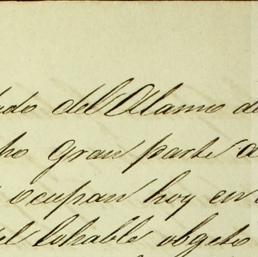 del Alamo
gran parte
ocupan hoy en
el lohable obgeto